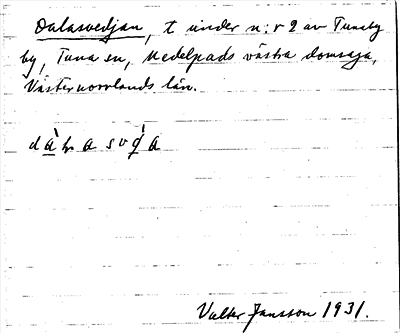 Dalasvedjan, t under n:r 2 av Tunaby
by, Tuna sn, Medelpads västra domsaga,
Västernorrlands län.
Valter Jansson 1931.